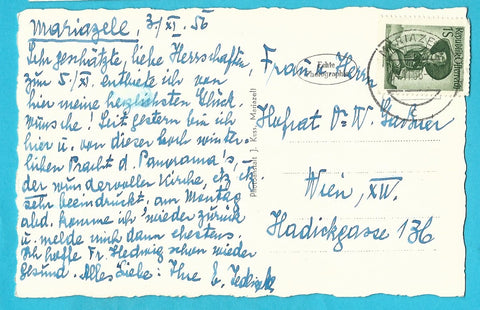 Mariazell, 3./XI. 56
Sehr geschätzte, liebe Herrschaften,
zum 5./XI. entbiete ich von
hier meine herzlichsten Glück-
wünsche! Seit gestern bin ich
hier u. von dieser hoch winter-
lichen Pracht d. Panorama's,
der wundervollen Kirche, etz. etz.
sehr beeindruckt. Am Montag
abd. komme ich wieder zurück
u. melde mich dann ehestens.
Ich hoffe Fr. Hedwig schon wieder
gesund. Alles Liebe: Ihre E.
Echte
Photographie
Postkartenverlag J. Kuss, Mariazell
MARIAZELL
S1
Republik Österreich
Frau u. Herrn
Hofrat Dr. W.
Wien, XIV.
Hadickgasse 136